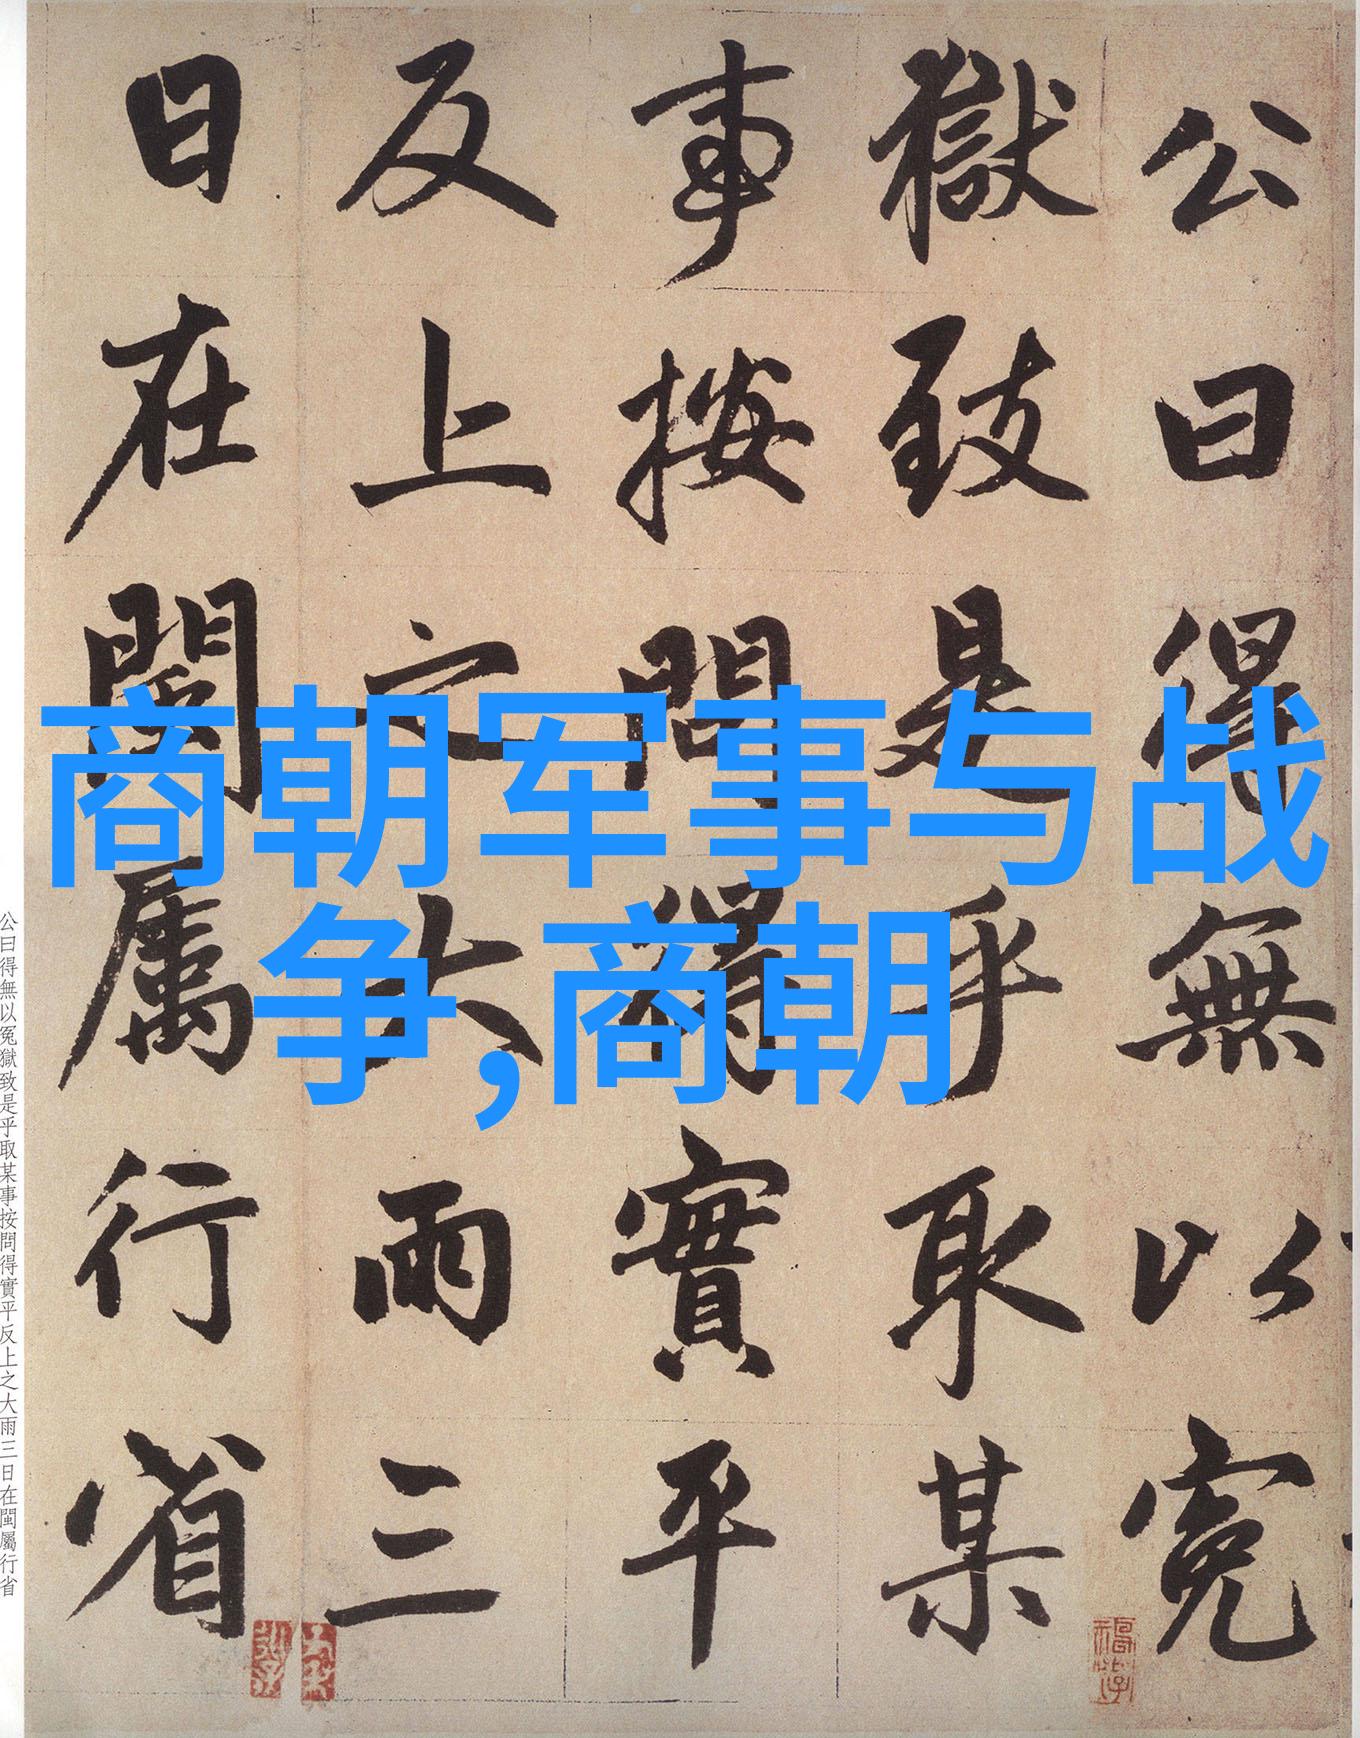 商朝军事与战
争,商朝
公曰得無以冤
獄致是乎取某
事按問得實平
反上之大雨三
日在閩属行省
公曰得無以冤獄致是乎取某事按問得實平反上之大雨三日在閩屬行省